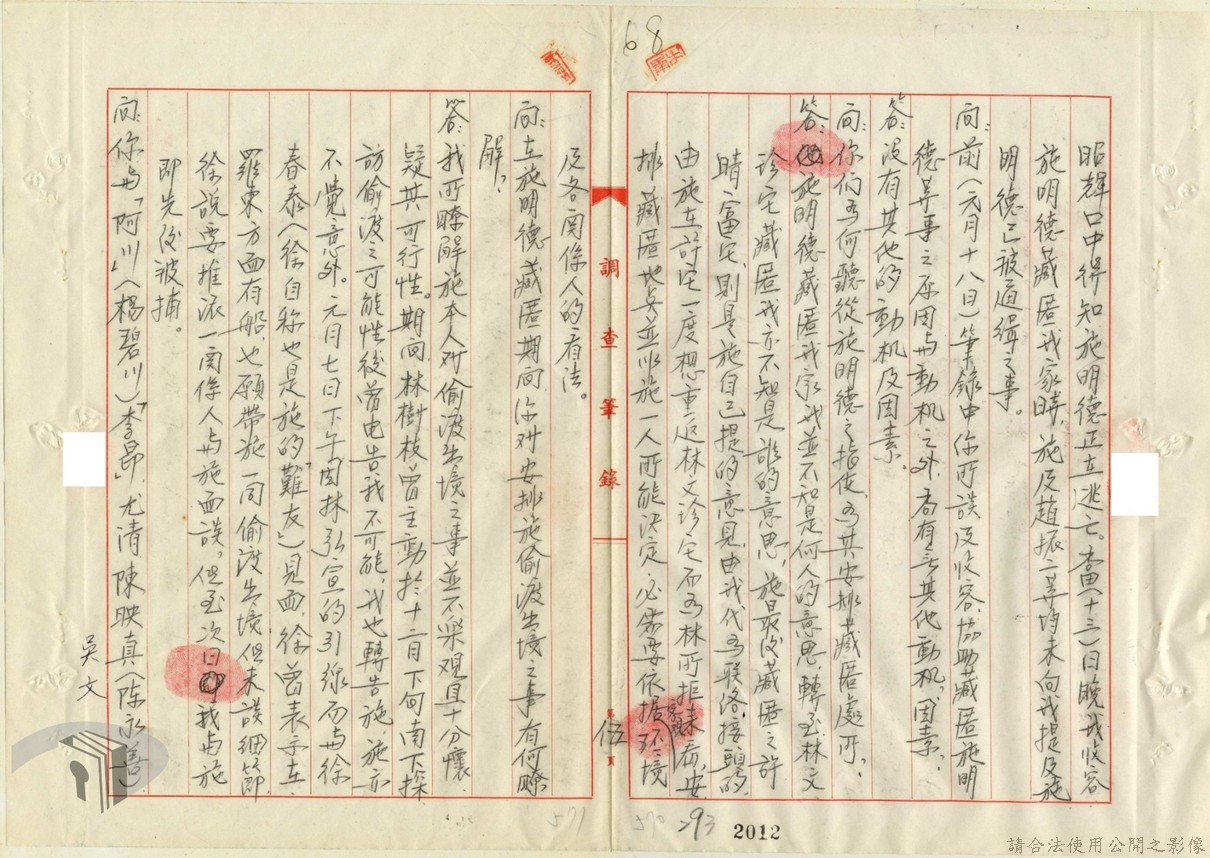 68
昭輝口中得知施明德正在逃亡。當(十三)日晚我收容
施明德藏匿我家時,施及趙振二等均未向我提及施
明德已被通緝之事。
問:前(元月十八日)筆錄中你所談及收容、協助藏匿施明
德等事之原因與動機之外,尚有無其他動機、因素?
答:沒有其他的動機及因素。
問:你們為何聽從施明德之指使,為其安排藏匿處所?
答:施明德藏匿我家我並不知是何人的意思,轉至林文
珍宅藏匿我亦不知是誰的意思,施最後藏匿之許
晴富宅,則是施自己提的意見,由我代為聯洛、接頭的
由施在許宅一度想重返林文珍宅而為林所拒來看,安
排藏匿地點並非施一人所能決定,必需要依據環境
實際
及各關係人的看法。
問:在施明德藏匿期間你对安排施偷渡出境之事有何瞭
解?
答:我所瞭解施本人对偷渡出境之事並不樂觀且十分懷
疑其可行性。期間林樹枝曾主動於十二月下旬南下探
訪偷渡之可能性後曾电告我不可能,我也轉告施,施亦
不覺意外。元月七日下午因林弘宣的引線而與徐
春泰(徐自称也是施的「難友」)見面,徐曾表示在
羅東方面有船,也願帶施一同偷渡出境,但未談細節
徐說要推派一關係人與施面談,但至次日我與施
即先後被捕。
問:你與「阿川」(楊碧川)「李昂」尤清、陳映真(陈永善)
調查筆錄
第伍頁
吳文
571
570
293
2012
請合法使用公開之影像